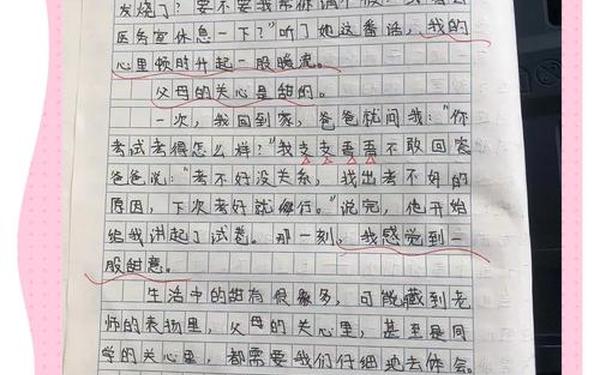 发烧了？要不要我帮你请个假？
医务室休息一下？”听了她这番话，我的
心里顿时升起一股暖流。
父母的关心是甜的。
一次，我回到家，爸爸就问我：“你
考试考得怎么样？”我支支吾吾不敢回答
爸爸说：“考不好没关系，找出考不好的
原因，下次考好就行。”说完，他开始
给我讲起了试卷。那一刻，我感觉到一
股甜意。
生活中的甜有很多，可能藏到老
师的表扬里，父母的关心里，甚至是同
学的关心里，都需要我们仔细地去体会。